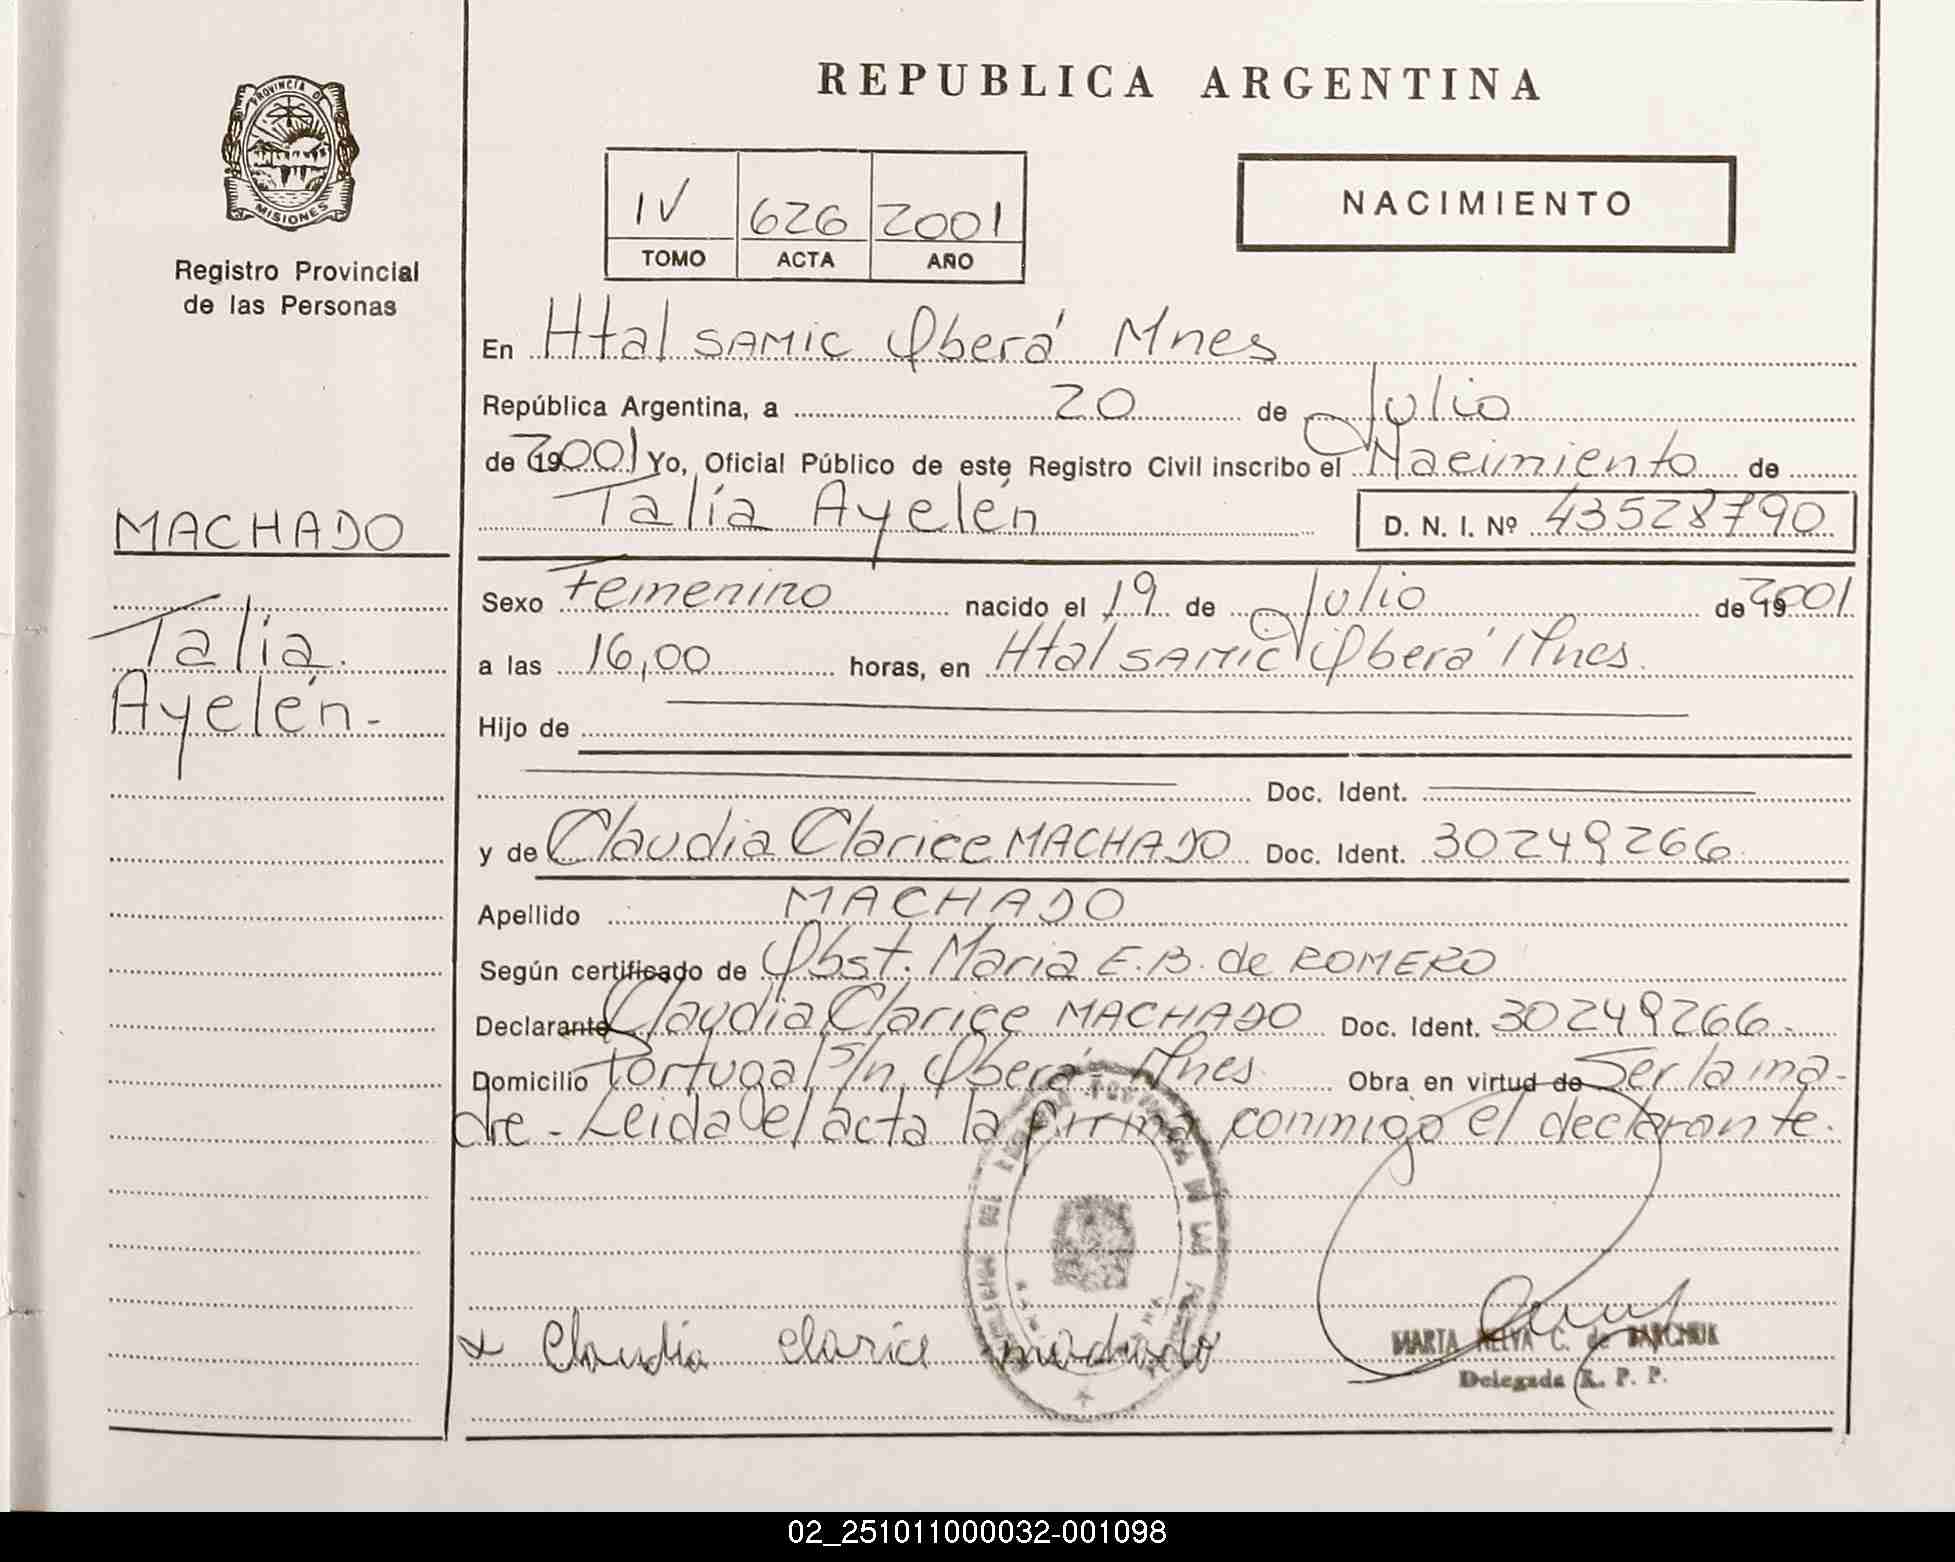 PROVINCIA DE
MISIONES
Registro Provincial
de las Personas
MACHADO
Talía
Ayelén-
REPUBLICA ARGENTINA
IV 626 2001
TOMO ACTA AÑO
NACIMIENTO
En Htal SAMIC Oberá Mnes
República Argentina, a 20 de Julio
de 2001 Yo, Oficial Público de este Registro Civil inscribo el Nacimiento de
Talía Ayelén D. N. I. Nº 43528790
Sexo Femenino nacido el 19 de Julio de 2001
a las 16,00 horas, en Htal SAMIC Oberá Mnes.
Hijo de
Doc. Ident.
y de Claudia Clarice MACHADO Doc. Ident. 30249266
Apellido MACHADO
Según certificado de Obst. Maria E.B. de ROMERO
Declarante Claudia Clarice MACHADO Doc. Ident. 30249266-
Domicilio Portugal S/n Oberá-Mnes. Obra en virtud de Ser la ma-
dre - Leida el acta la firma conmigo el declarante.
x Claudia clarice machado
MARTA NELVA C. de
Delegada R. P. P.
02_251011000032-001098